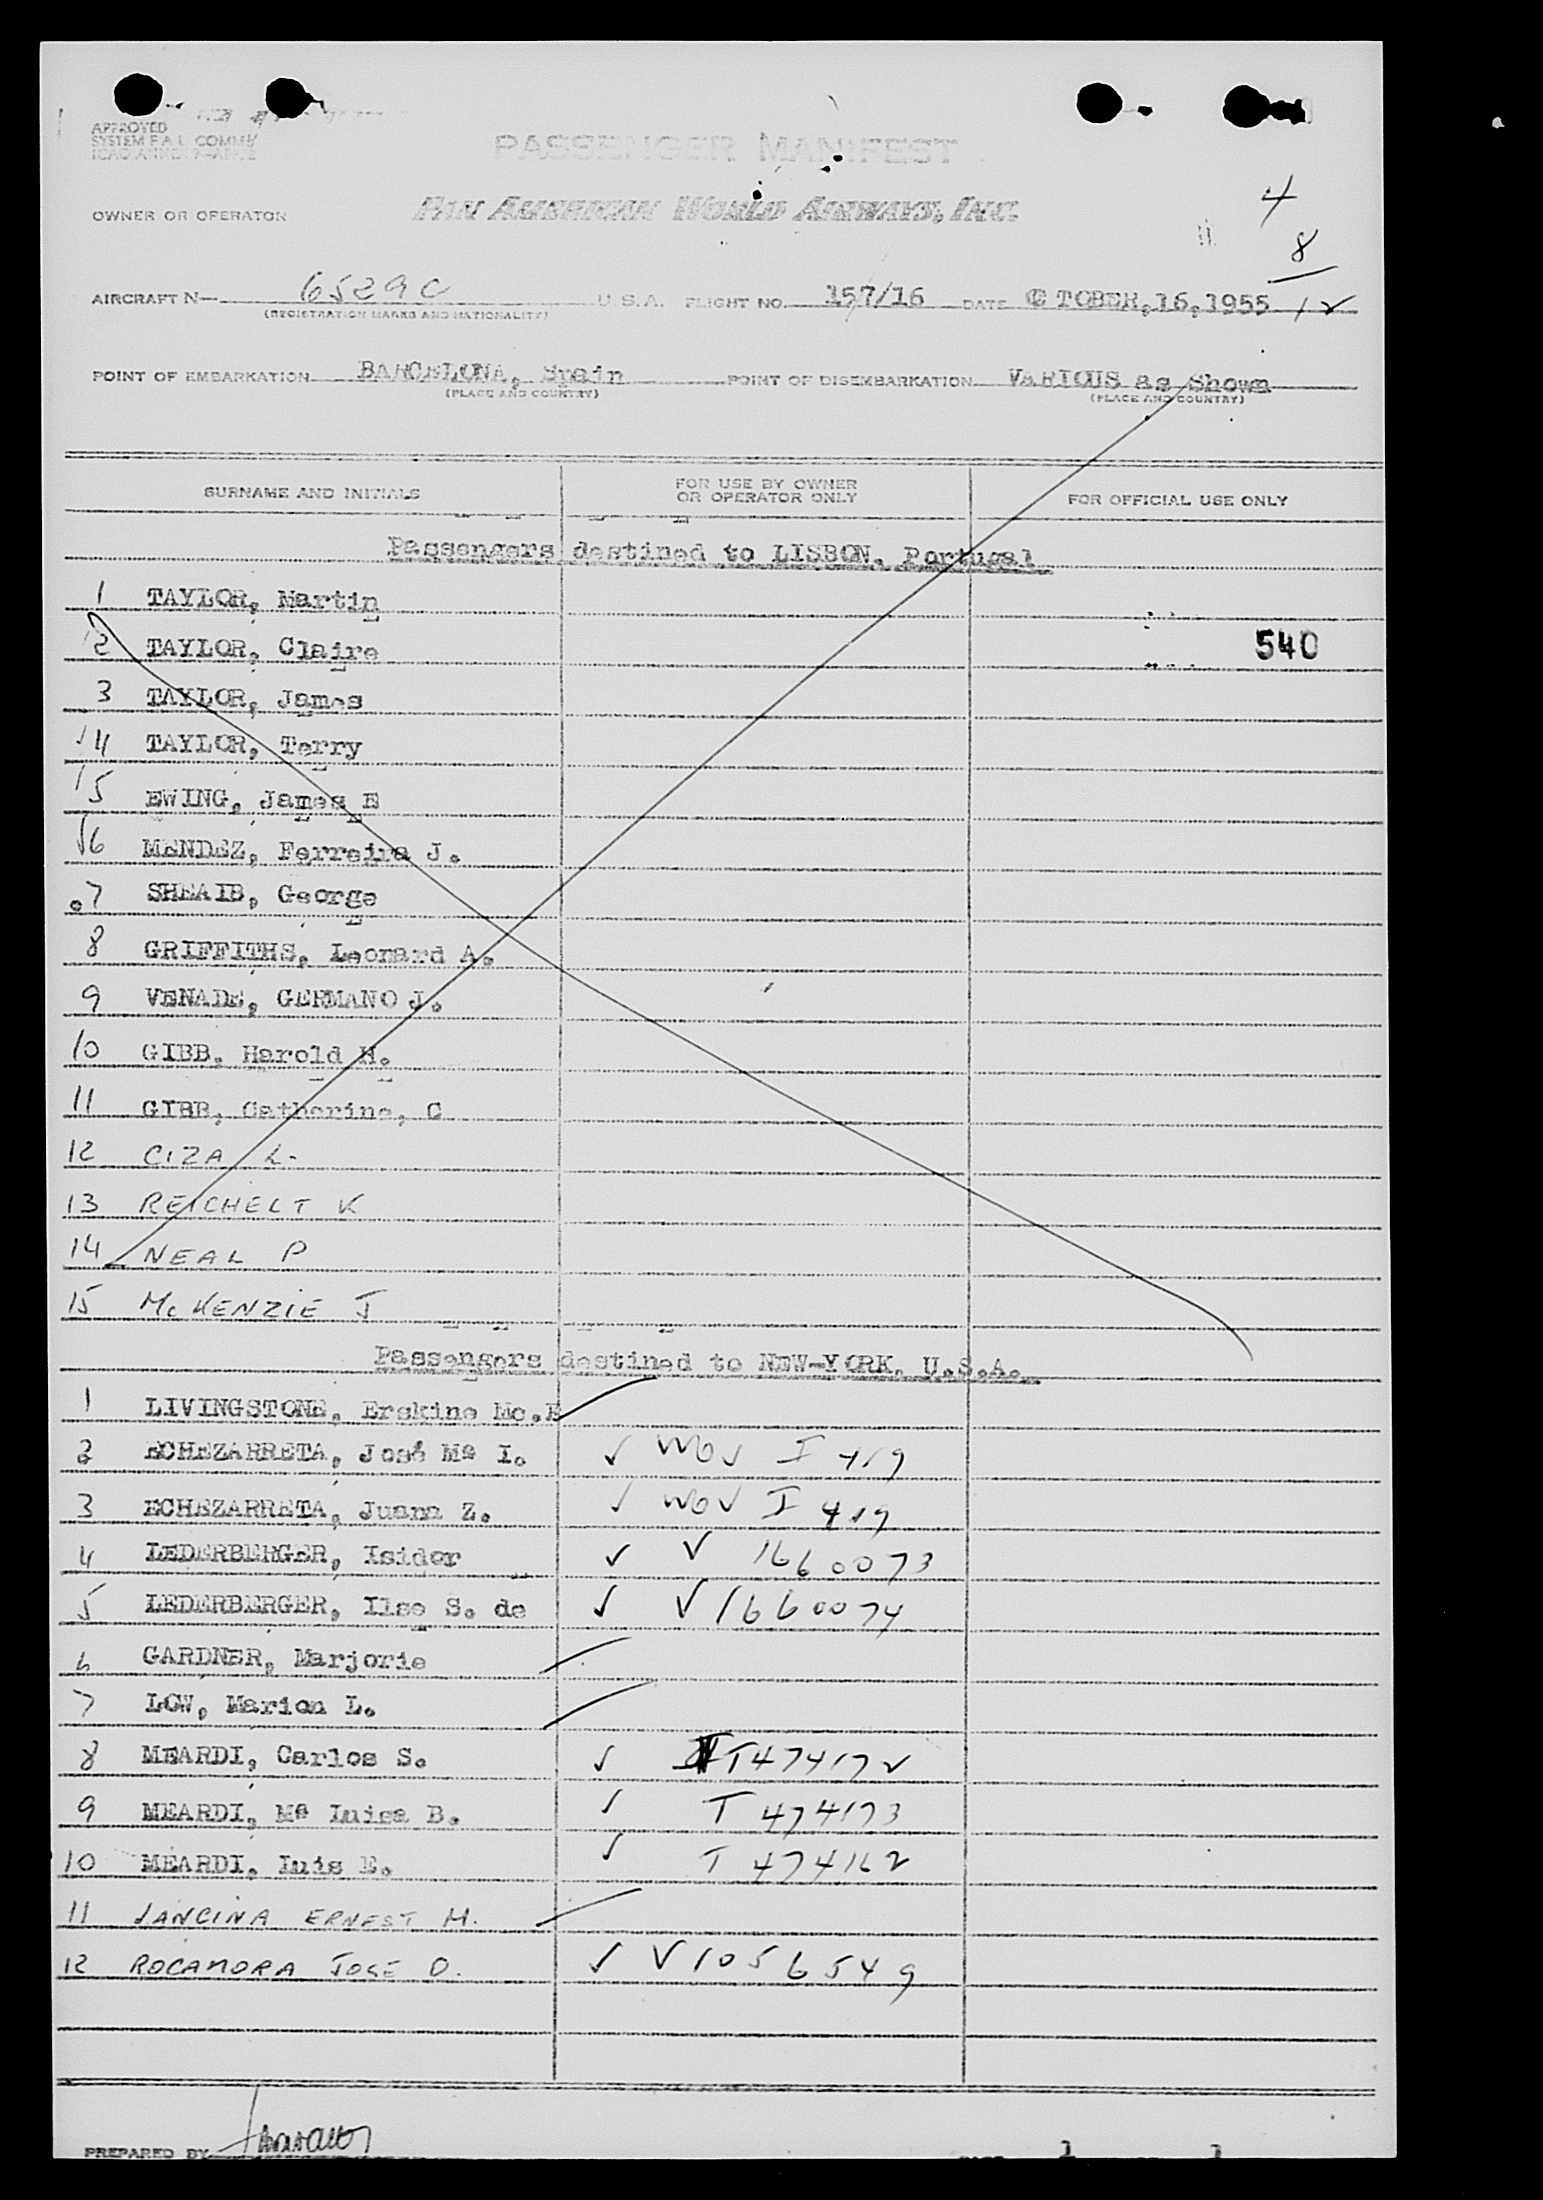 APPROVED
SYSTEM F.A.L. COMM
PASSENGER MANIFEST
OWNER OR OPERATOR PAN AMERICAN WORLD AIRWAYS, INC.
4
8
AIRCRAFT N— 6529C U.S.A. FLIGHT NO. 157/16 DATE OCTOBER,16,1955 12
(REGISTRATION MARKS AND NATIONALITY)
POINT OF EMBARKATION BARCELONA, Spain POINT OF DISEMBARKATION VARIOUS as Shown
(PLACE AND COUNTRY) (PLACE AND COUNTRY)
SURNAME AND INITIALS FOR USE BY OWNER OR OPERATOR ONLY FOR OFFICIAL USE ONLY
Passengers destined to LISBON, Portugal
1 TAYLOR, Martin
2 TAYLOR, Claire 540
3 TAYLOR, James
4 TAYLOR, Terry
5 EWING, James E
6 MENDEZ, Ferreira J.
7 SHEAIB, George
8 GRIFFITHS, Leonard A.
9 VENADE, GERMANO J.
10 GIBB, Harold H.
11 GIBB, Catherine, C
12 CIZA L.
13 REICHELT K
14 NEAL P
15 McKENZIE J
Passengers destined to NEW-YORK, U.S.A.
1 LIVINGSTONE, Erskine Mc.E
2 ECHEZARRETA, José Mª I. ✓ WOV I 419
3 ECHEZARRETA, Juana Z. ✓ WOV I 419
4 LEDERBERGER, Isidor ✓ V 1660073
5 LEDERBERGER, Ilse S. de ✓ V1660074
6 GARDNER, Marjorie
7 LOW, Marion L.
8 MEARDI, Carlos S. ✓ T474172
9 MEARDI, Mª Luisa B. ✓ T 474173
10 MEARDI, Luis E. ✓ T 474162
11 JANCINA ERNEST M.
12 ROCAMORA JOSE O. ✓ V1056549
PREPARED BY